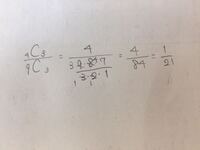 ₄C₃/₉C₃ = 4/((9·8·7)/(3·2·1)) = 4/84 = 1/21